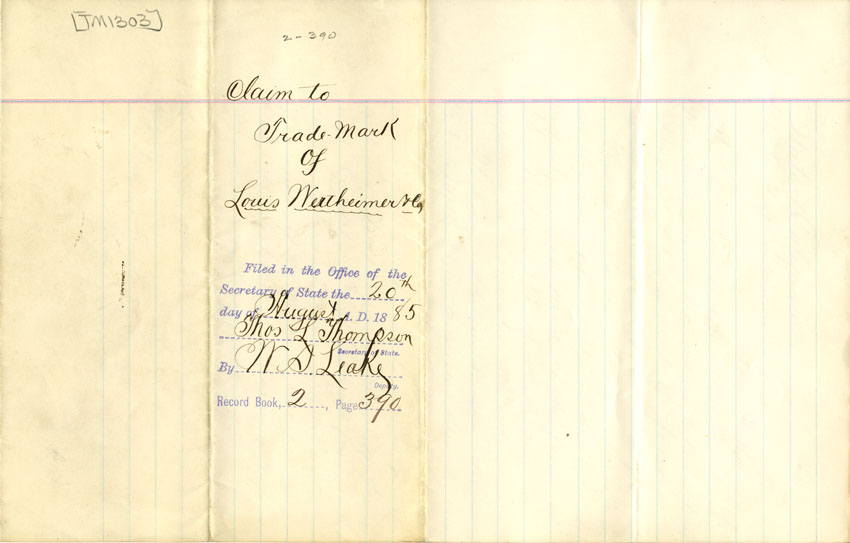 [TM1303]
2-390
Claim to
Trade-Mark
Of
Louis Wertheimer & Co
Filed in the Office of the
Secretary of State the 20th
day of August A. D. 1885
Thos L Thompson
Secretary of State.
By W. D. Leake
Deputy.
Record Book, 2, Page 390